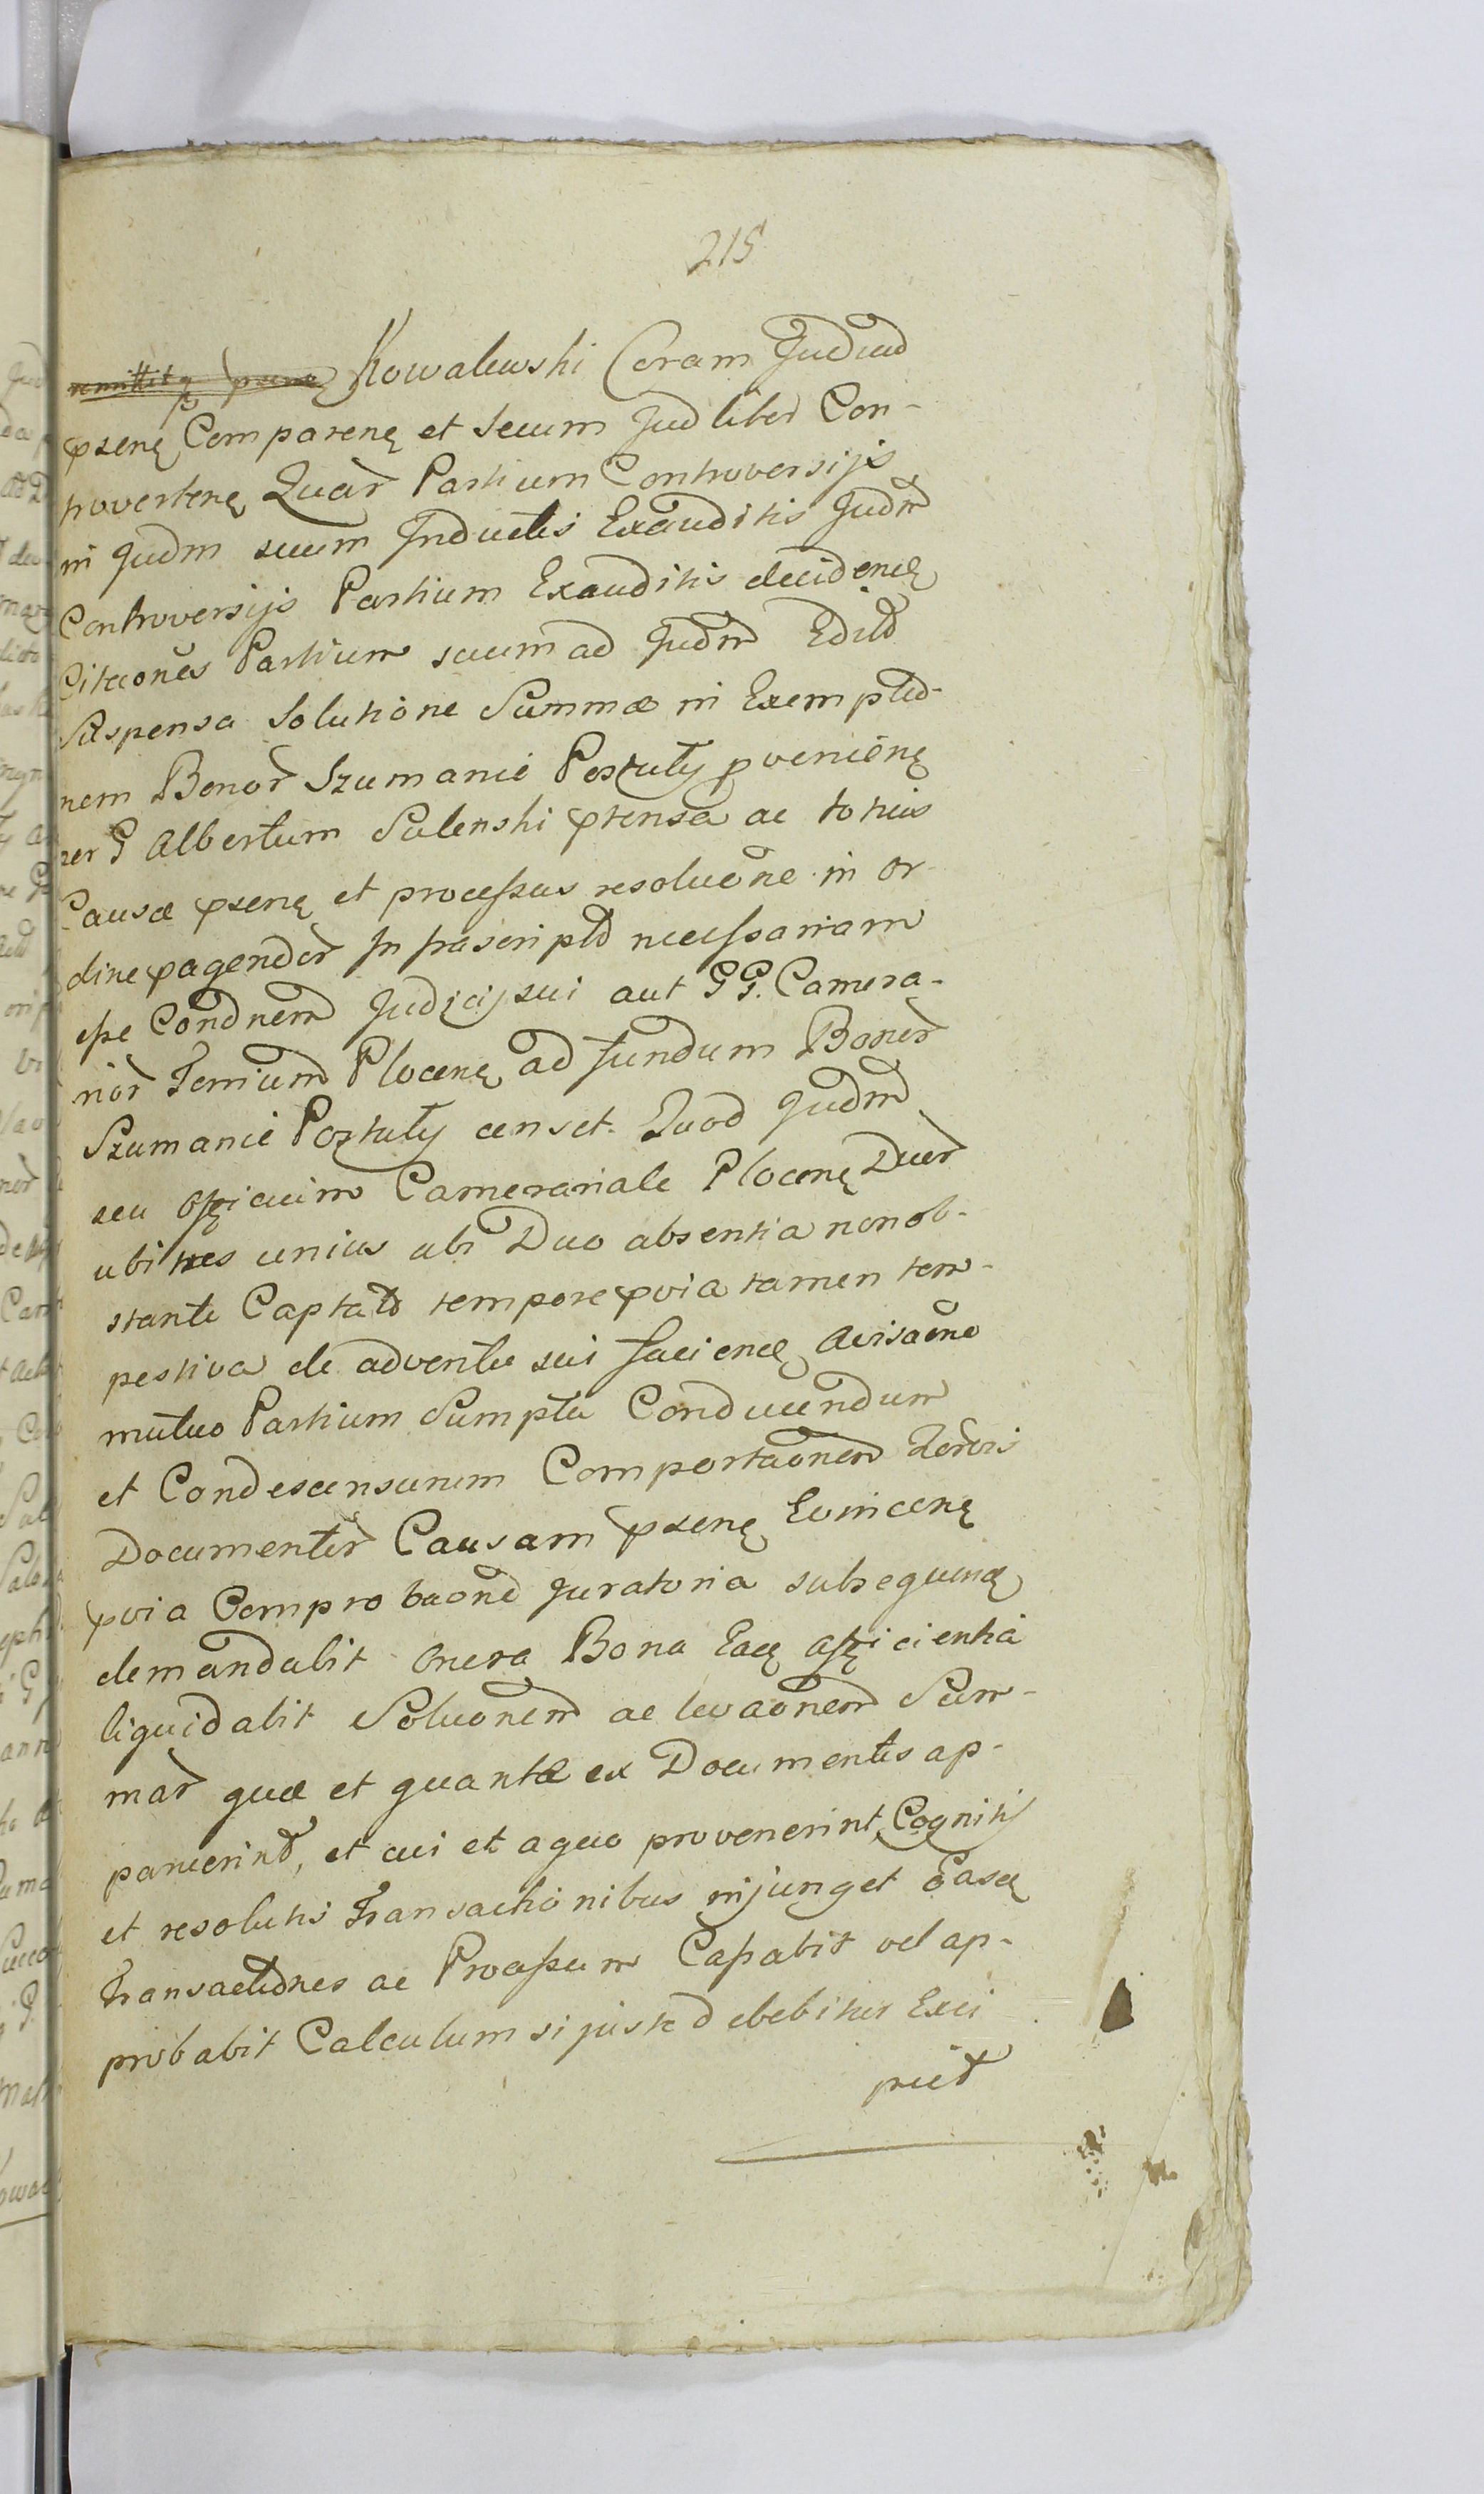 215
Kowalewski Coram Judicio
psenę Comparenę et secum Jud liber Con-
trovertenę Quar Partium Controversijs
in Judm suum Inductis Exauditis Judm
Controversijs Partium Exauditis decidenę
Citaones Partium suum ad Judm
Suspensa Solutione Summæ in Exemptio-
nem Bonor Szumanie Pospuły pvenienę
per G Albertum Sulenski ptensa ac totius
Causæ psenę et processus resoluone in or-
dine pagendor Infrascripto necessariam
esse Condnem Judicij sui aut GG. Camera-
rior Plocenę ad fundum Bonor
Szumanie censet. Quod Judm
seu Officium Camerariale Plocenę Duor
ubi tres unius ubi Duo absentia non ob-
stante Captato tempore pvia tamen tem-
pestiva de adventu sui facienę avisaone
mutuo Partium Sumptu Conducendum
et Condescensurum Comportaonem
Documentor Causam psenę Evincenę
pvia Comprobaone Juratoria subsequenę
demandabit onera Bona Eaę afficientia
liquidabit Soluonem ac levaonem Sum-
mar quæ et quantæ ex Documentis ap-
paruerint, et cui et a quo provenerint Cognitis
et resolutis Transactionibus injunget Easę
Transactiones ac Processum Cassabit vel ap-
probabit Calculum si juste debebitur Exci
piet